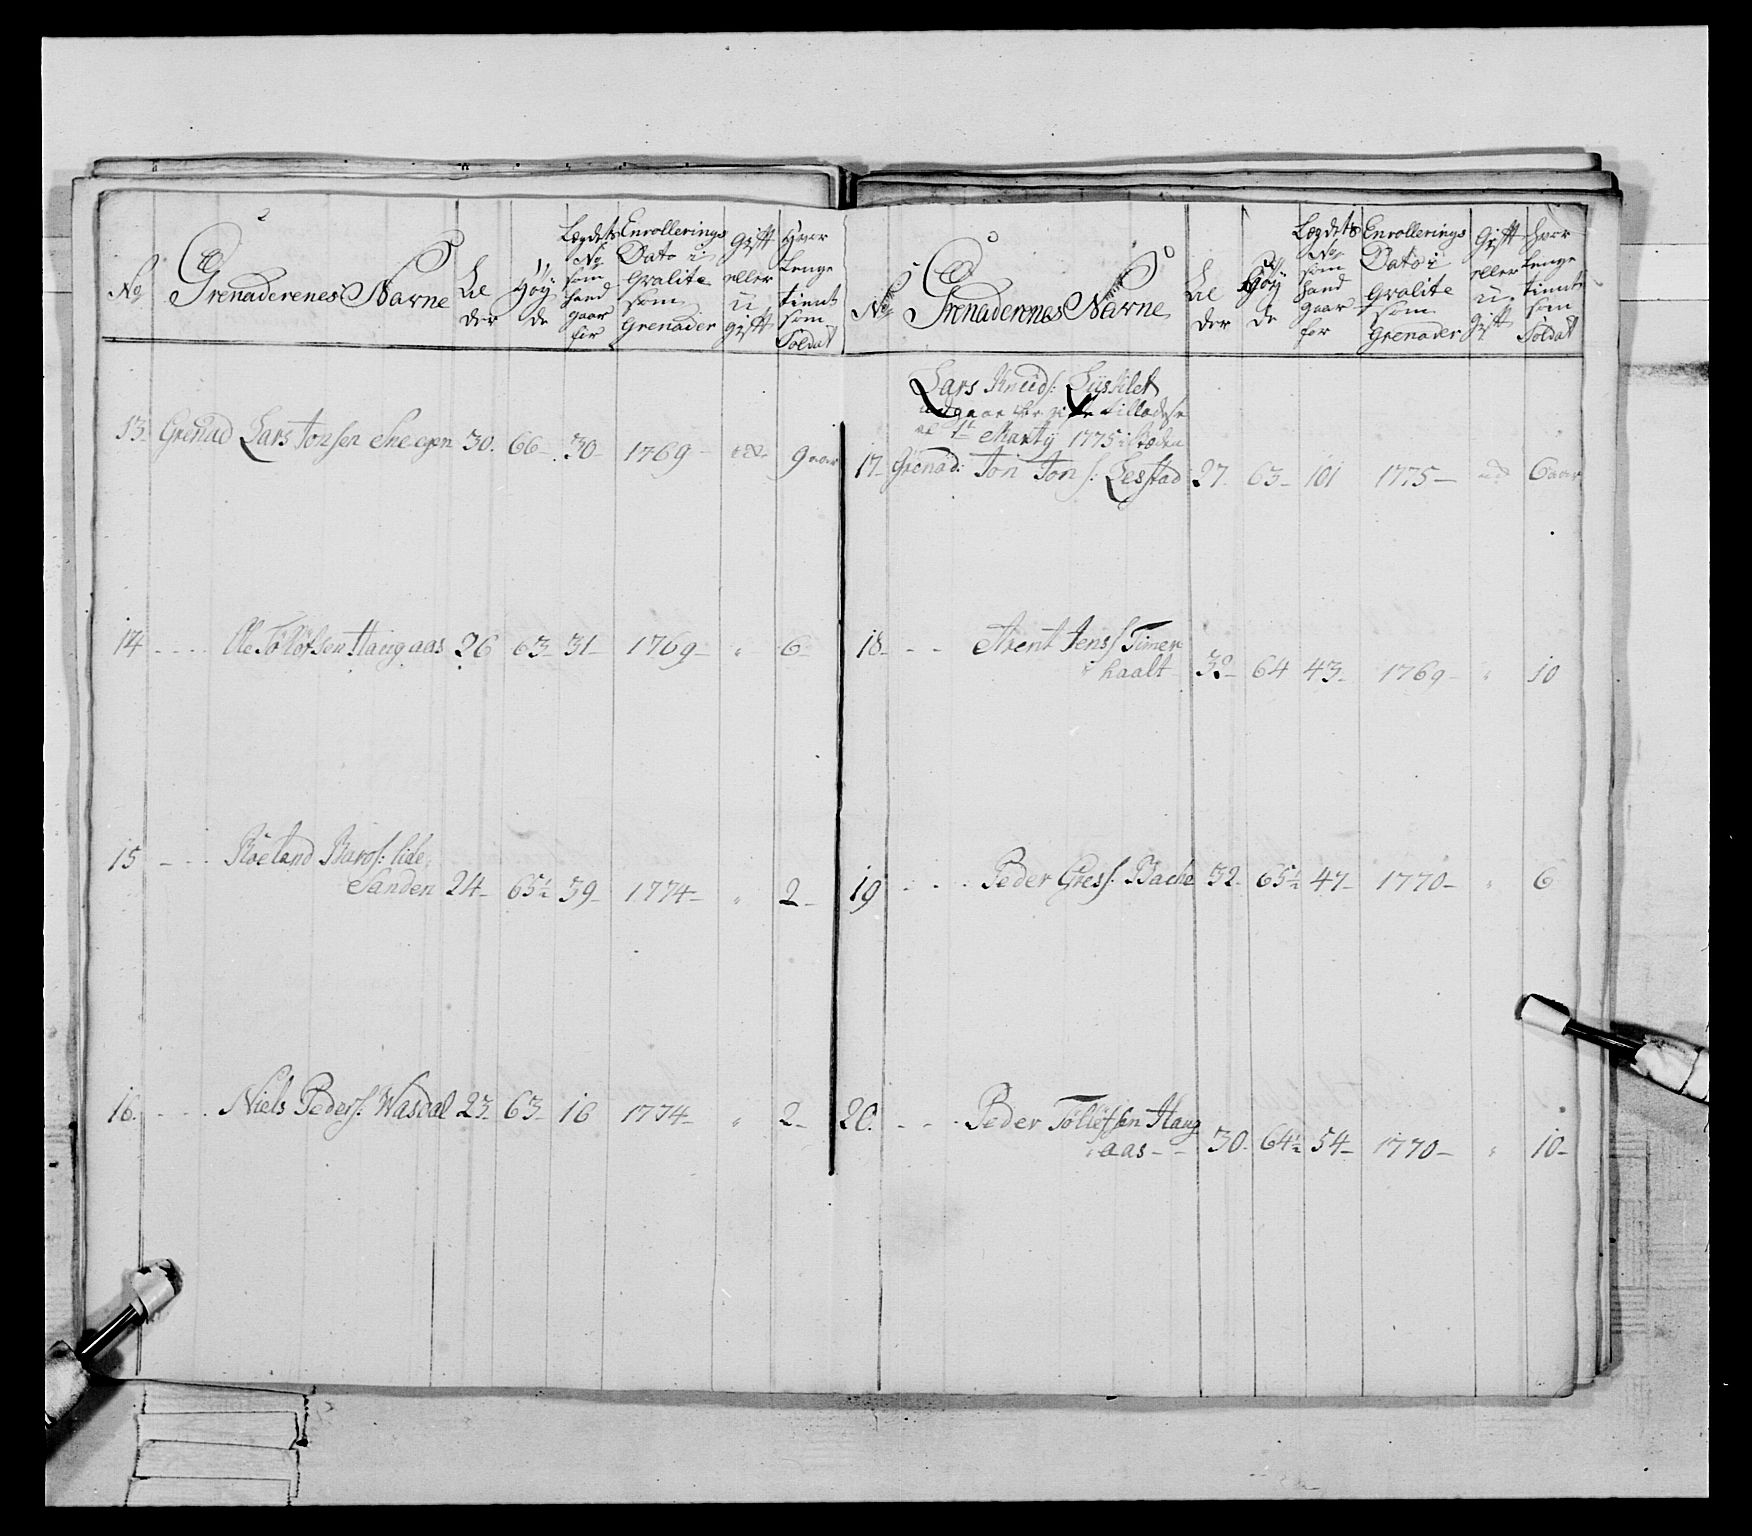 No Grenaderenes Navne Al der Höy de Lægdets No som hand gaar for Enrollerings Dato i Qvalite som Grenader Gift eller u gift Hvor Lenge tient som Soldat
13. Grenad Lars Jonsen 30. 66 30 1769 9 aar
14 Ole Tollofsen Haugaas 26 63 31 1769 " 6
15 Roeland Baros: lide
Sanden 24 65½ 39 1774 " 2
16. Niels Peders: Wasdal 23 63 16 1774 " 2
No Grenaderenes Navne Al der Höy de Lægdets No som hand gaar for Enrollerings Dato i Qvalite som Grenader Gift eller u gift hvor lenge tient som Soldat
Lars Knuds:
1t Marty 1775 i Stæden
17 Grenad: Jon Jons: Lesstad 27 63 101 1775 6 aar
18 Arent Jens: Timer
haalt 30 64 43 1769 " 10
19 Peder Gres: Bache 32 65½ 47 1770 " 6
20. Peder Tollefsen Haug
aas 30 64½ 54 1770 " 10